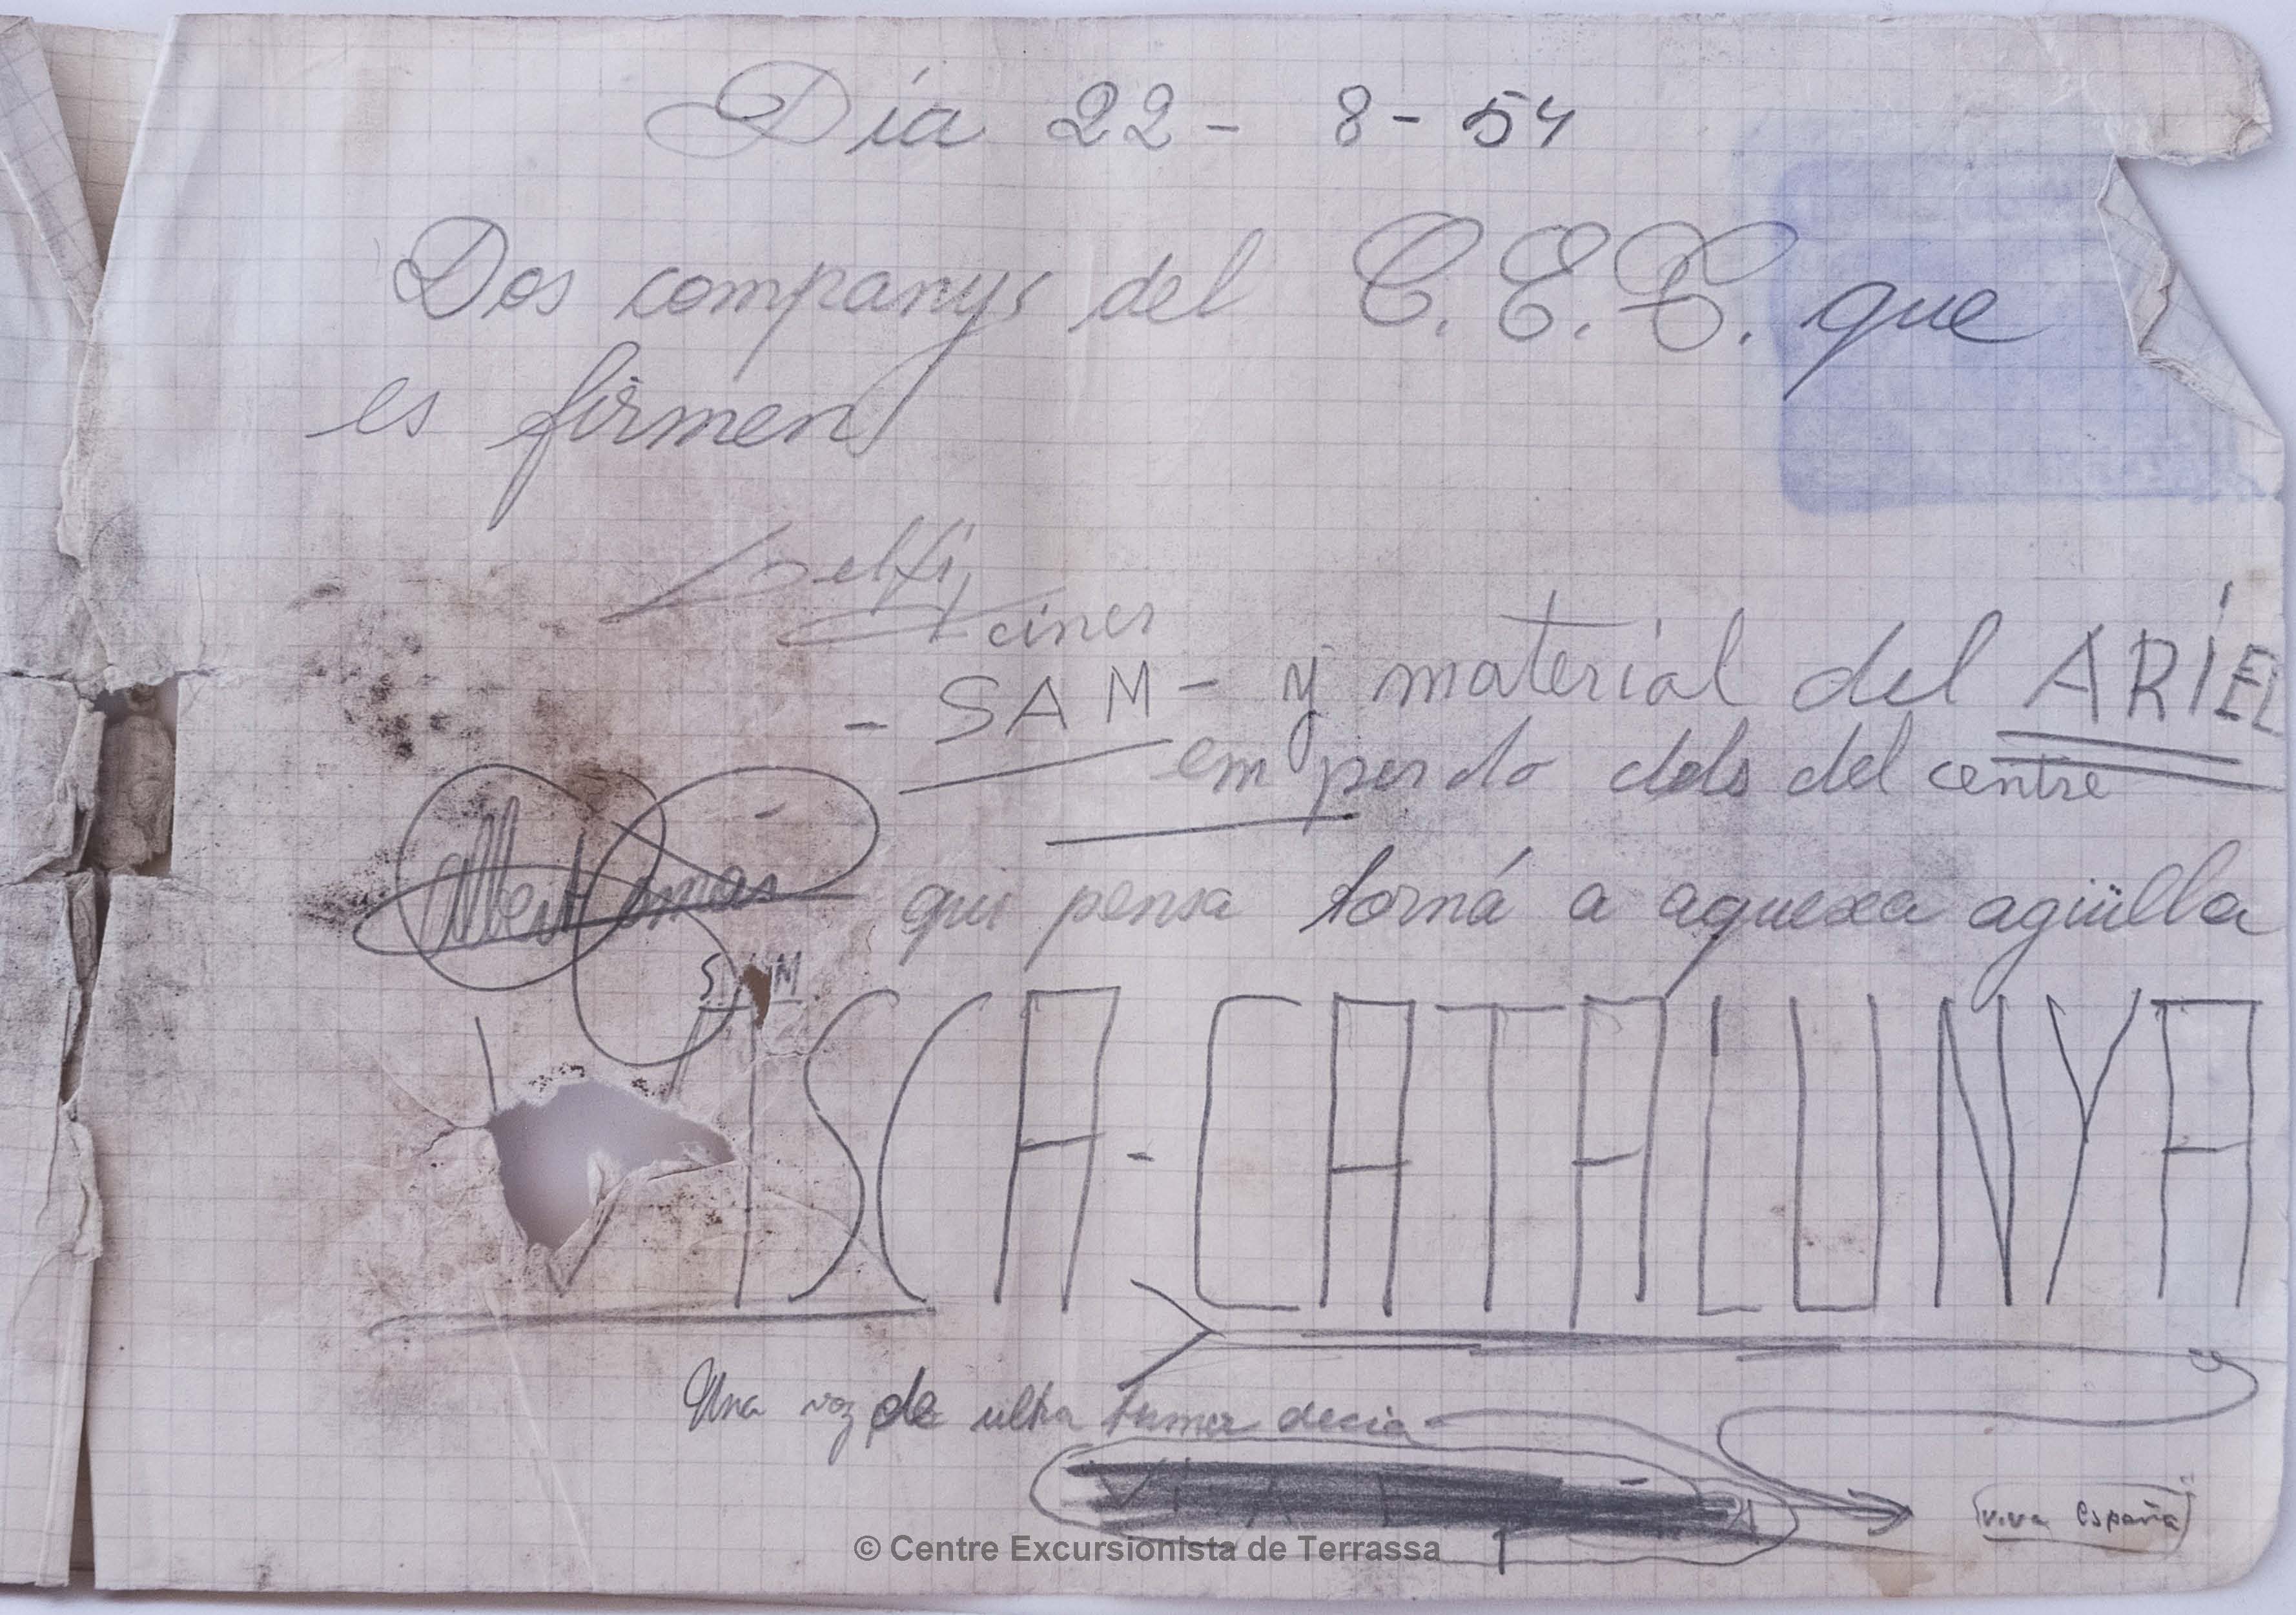 Día 22 - 8 - 54
Dos companys del C.E.C. que
es firmen
- SAM - y material del ARÍEL
em perdo del centre
Albert
qui pensa torná a aquexa agüilla
SAM
VISCA-CATALUNYA
Una voz de ultra tumer decia
viva España
© Centre Excursionista de Terrassa